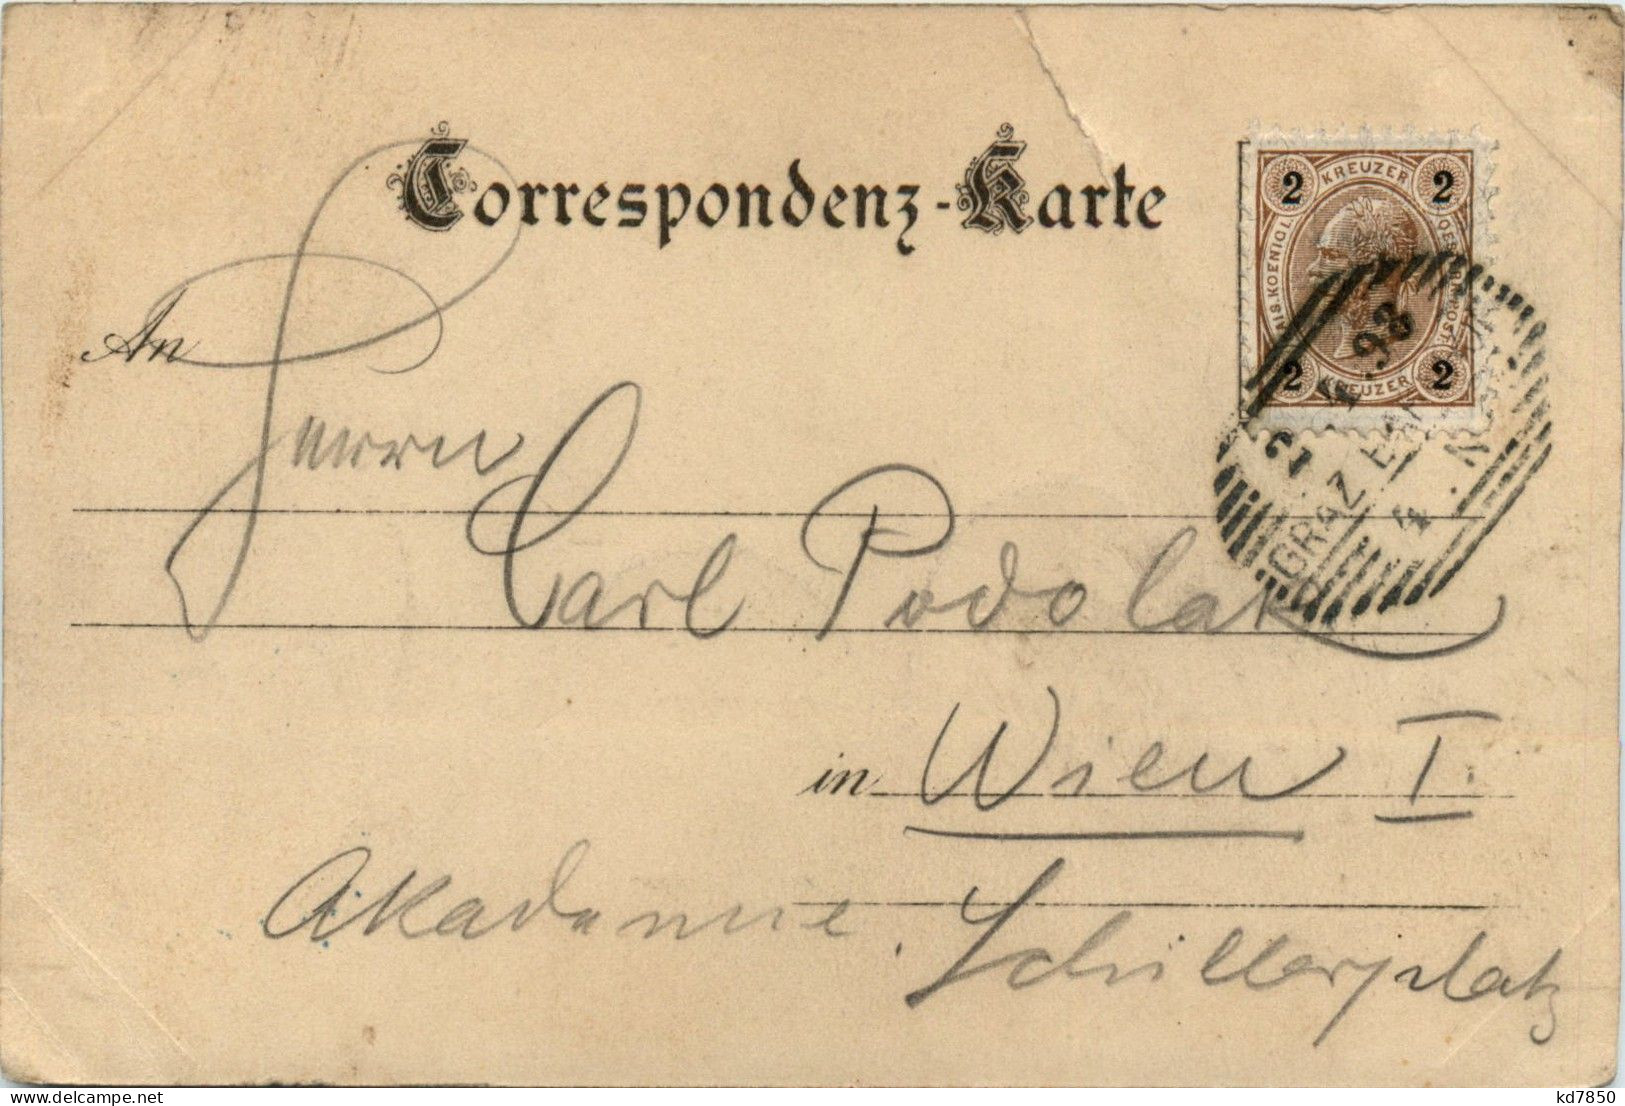 Correspondenz-Karte
2 KREUZER 2
KAIS. KOENIGL.
2 KREUZER 2
An
Herrn
Carl Podolak
GRAZ
4
in Wien I
Akademie. Schillerplatz
delcampe.net
kd7850